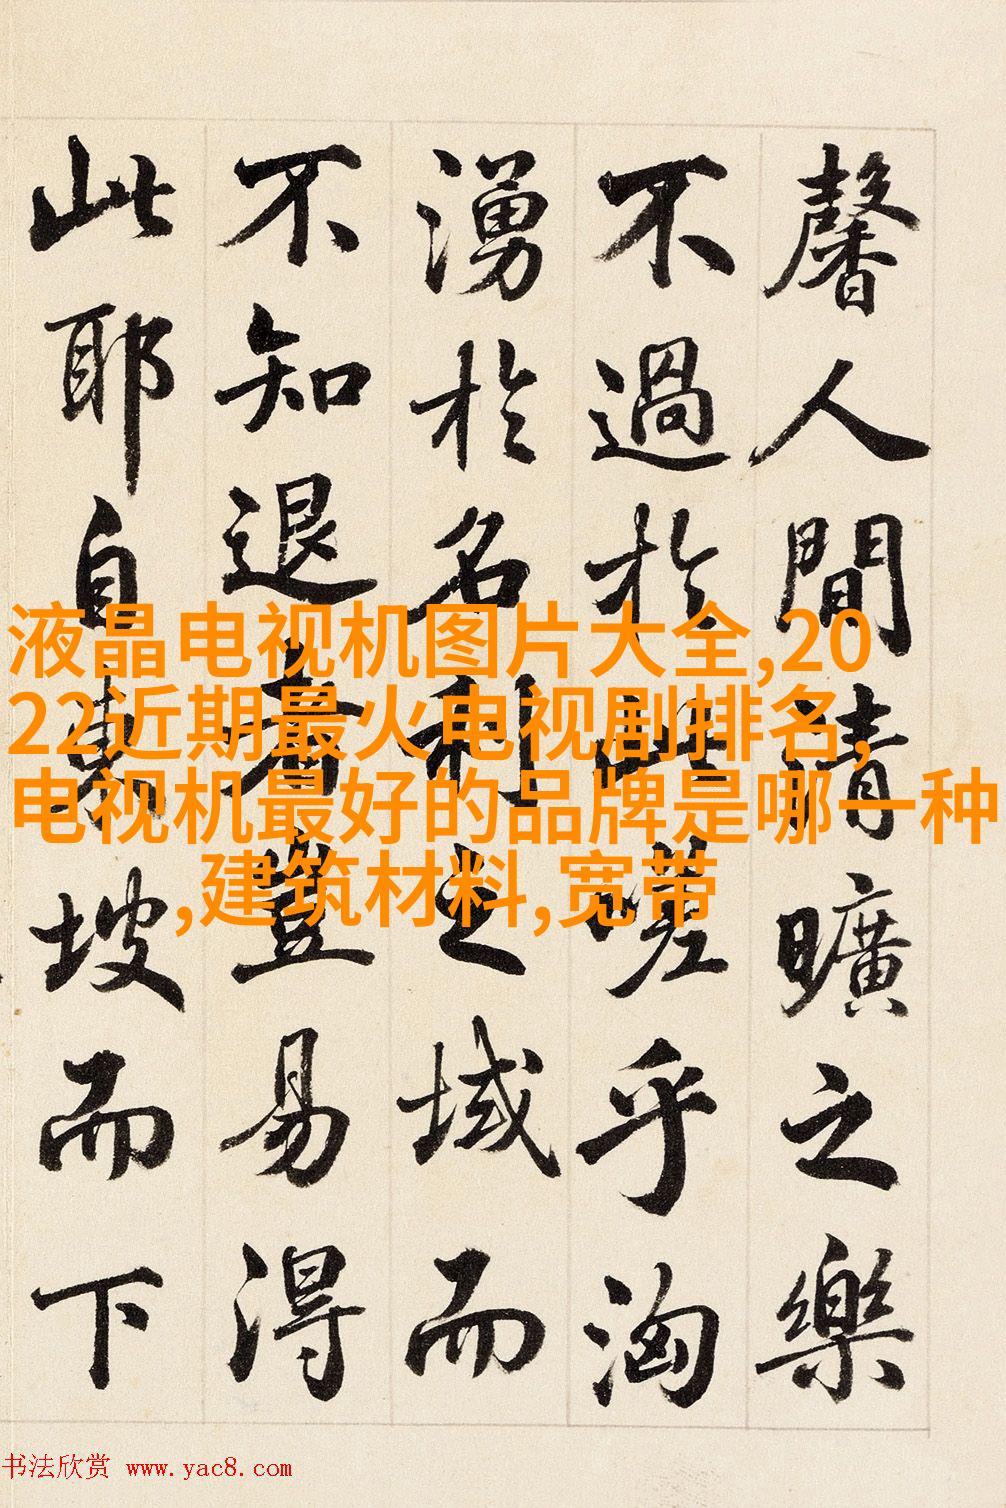 馨人間清曠之樂
不過於此嗟乎洶
湧於名利之域而
不知退者豈易得
此耶自東坡而下
液晶电视机图片大全,20
22近期最火电视剧排名,
电视机最好的品牌是哪一种
,建筑材料,宽带
书法欣赏 www.yac8.com